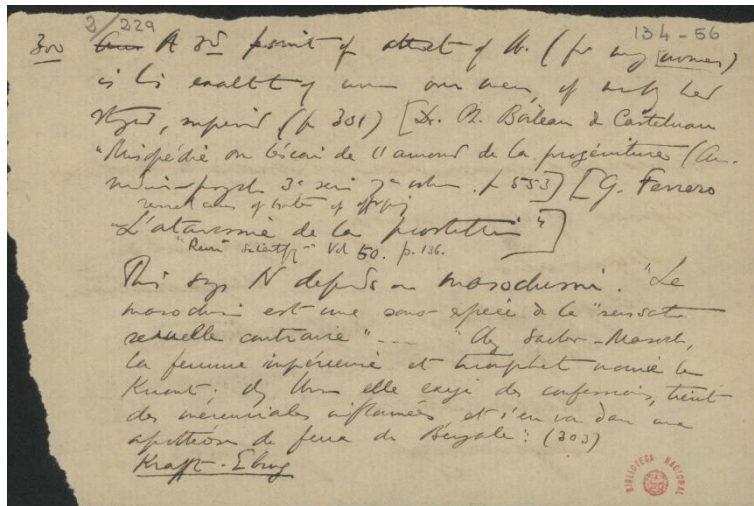 2/229
134-56
300 A 3d point of attract of Ib. (for my women)
is his exalt of women over men, of
superior (p 301) [Dr. Ch. Boileau de Castelnau
"Misopédie ou lésion de l'amour de la progéniture (An.
médico-psych. 3e série 7e volum. p 553)] [G. Ferrero
of
L'atavisme de la prostitution"]
"Revue scientif" Vol 50. p. 136.
This says N depends on masochism. "Le
masochism est une sous-espèce de la "sensation
sexuelle contraire" --- "Chez Sacher-Masoch,
la femme impérieuse et triomphet manie le
Knout; chez Ibsen elle exige des confessions, tient
des mercuriales enflammées et s'en va dans une
apothéose de feux de Bengale": (303)
Krafft-Ebing
BIBLIOTECA NACIONAL